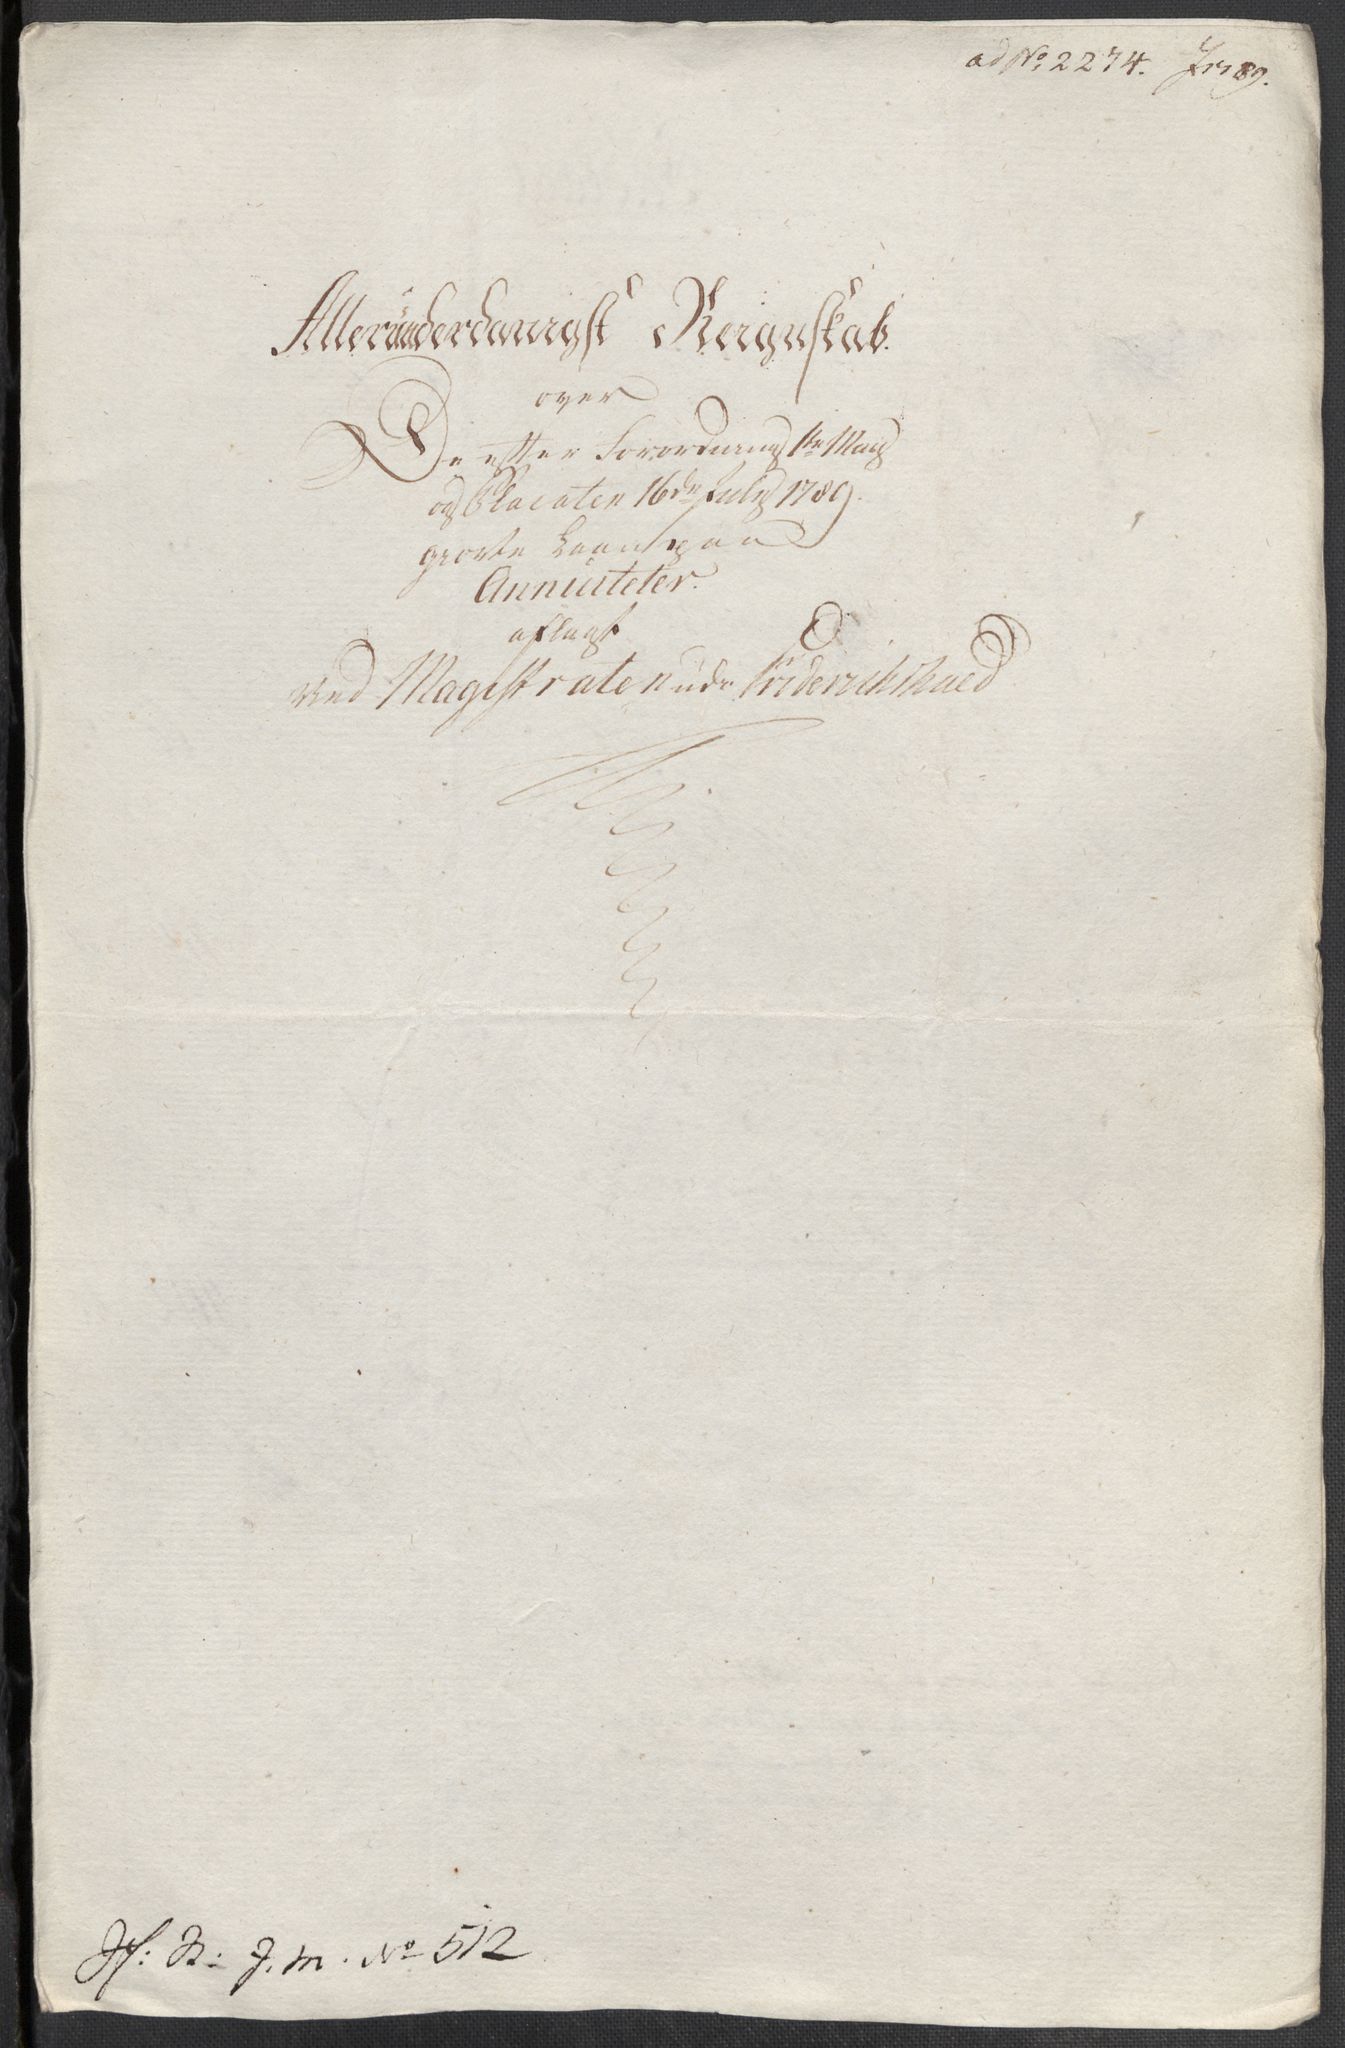 ad No 2274.
Allerunderdanigst Regnskab
over
De efter Forordning 1te May
og Placaten 16de July 1789.
giorte Laan paa
Annuiteter.
aflagt
ved Magistraten udi Friderichshald
J. m. No 512